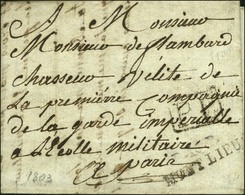 A Monsieur
Monsieur de flambard
chasseur vélite de
La première compagnie
de la garde impérialle
a L'Ecolle militaire
a paris
MONTLIEU